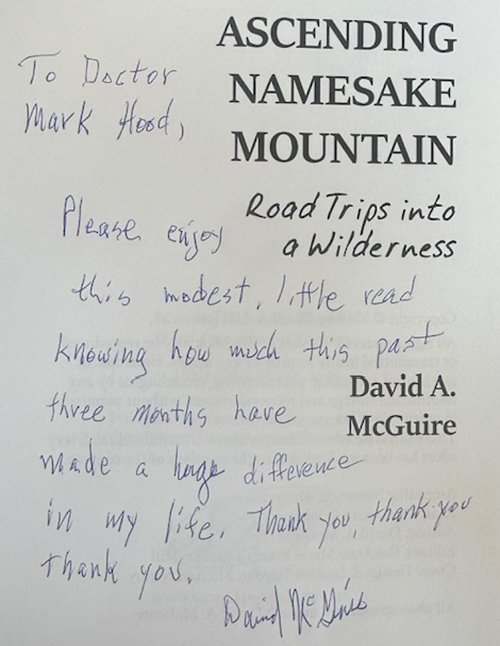 ASCENDING
NAMESAKE
MOUNTAIN
Road Trips into
a Wilderness
David A.
McGuire
To Doctor
Mark Hood,
Please enjoy
this modest, little read
knowing how much this past
three months have
made a huge difference
in my life. Thank you, thank you
thank you.
David McGuire